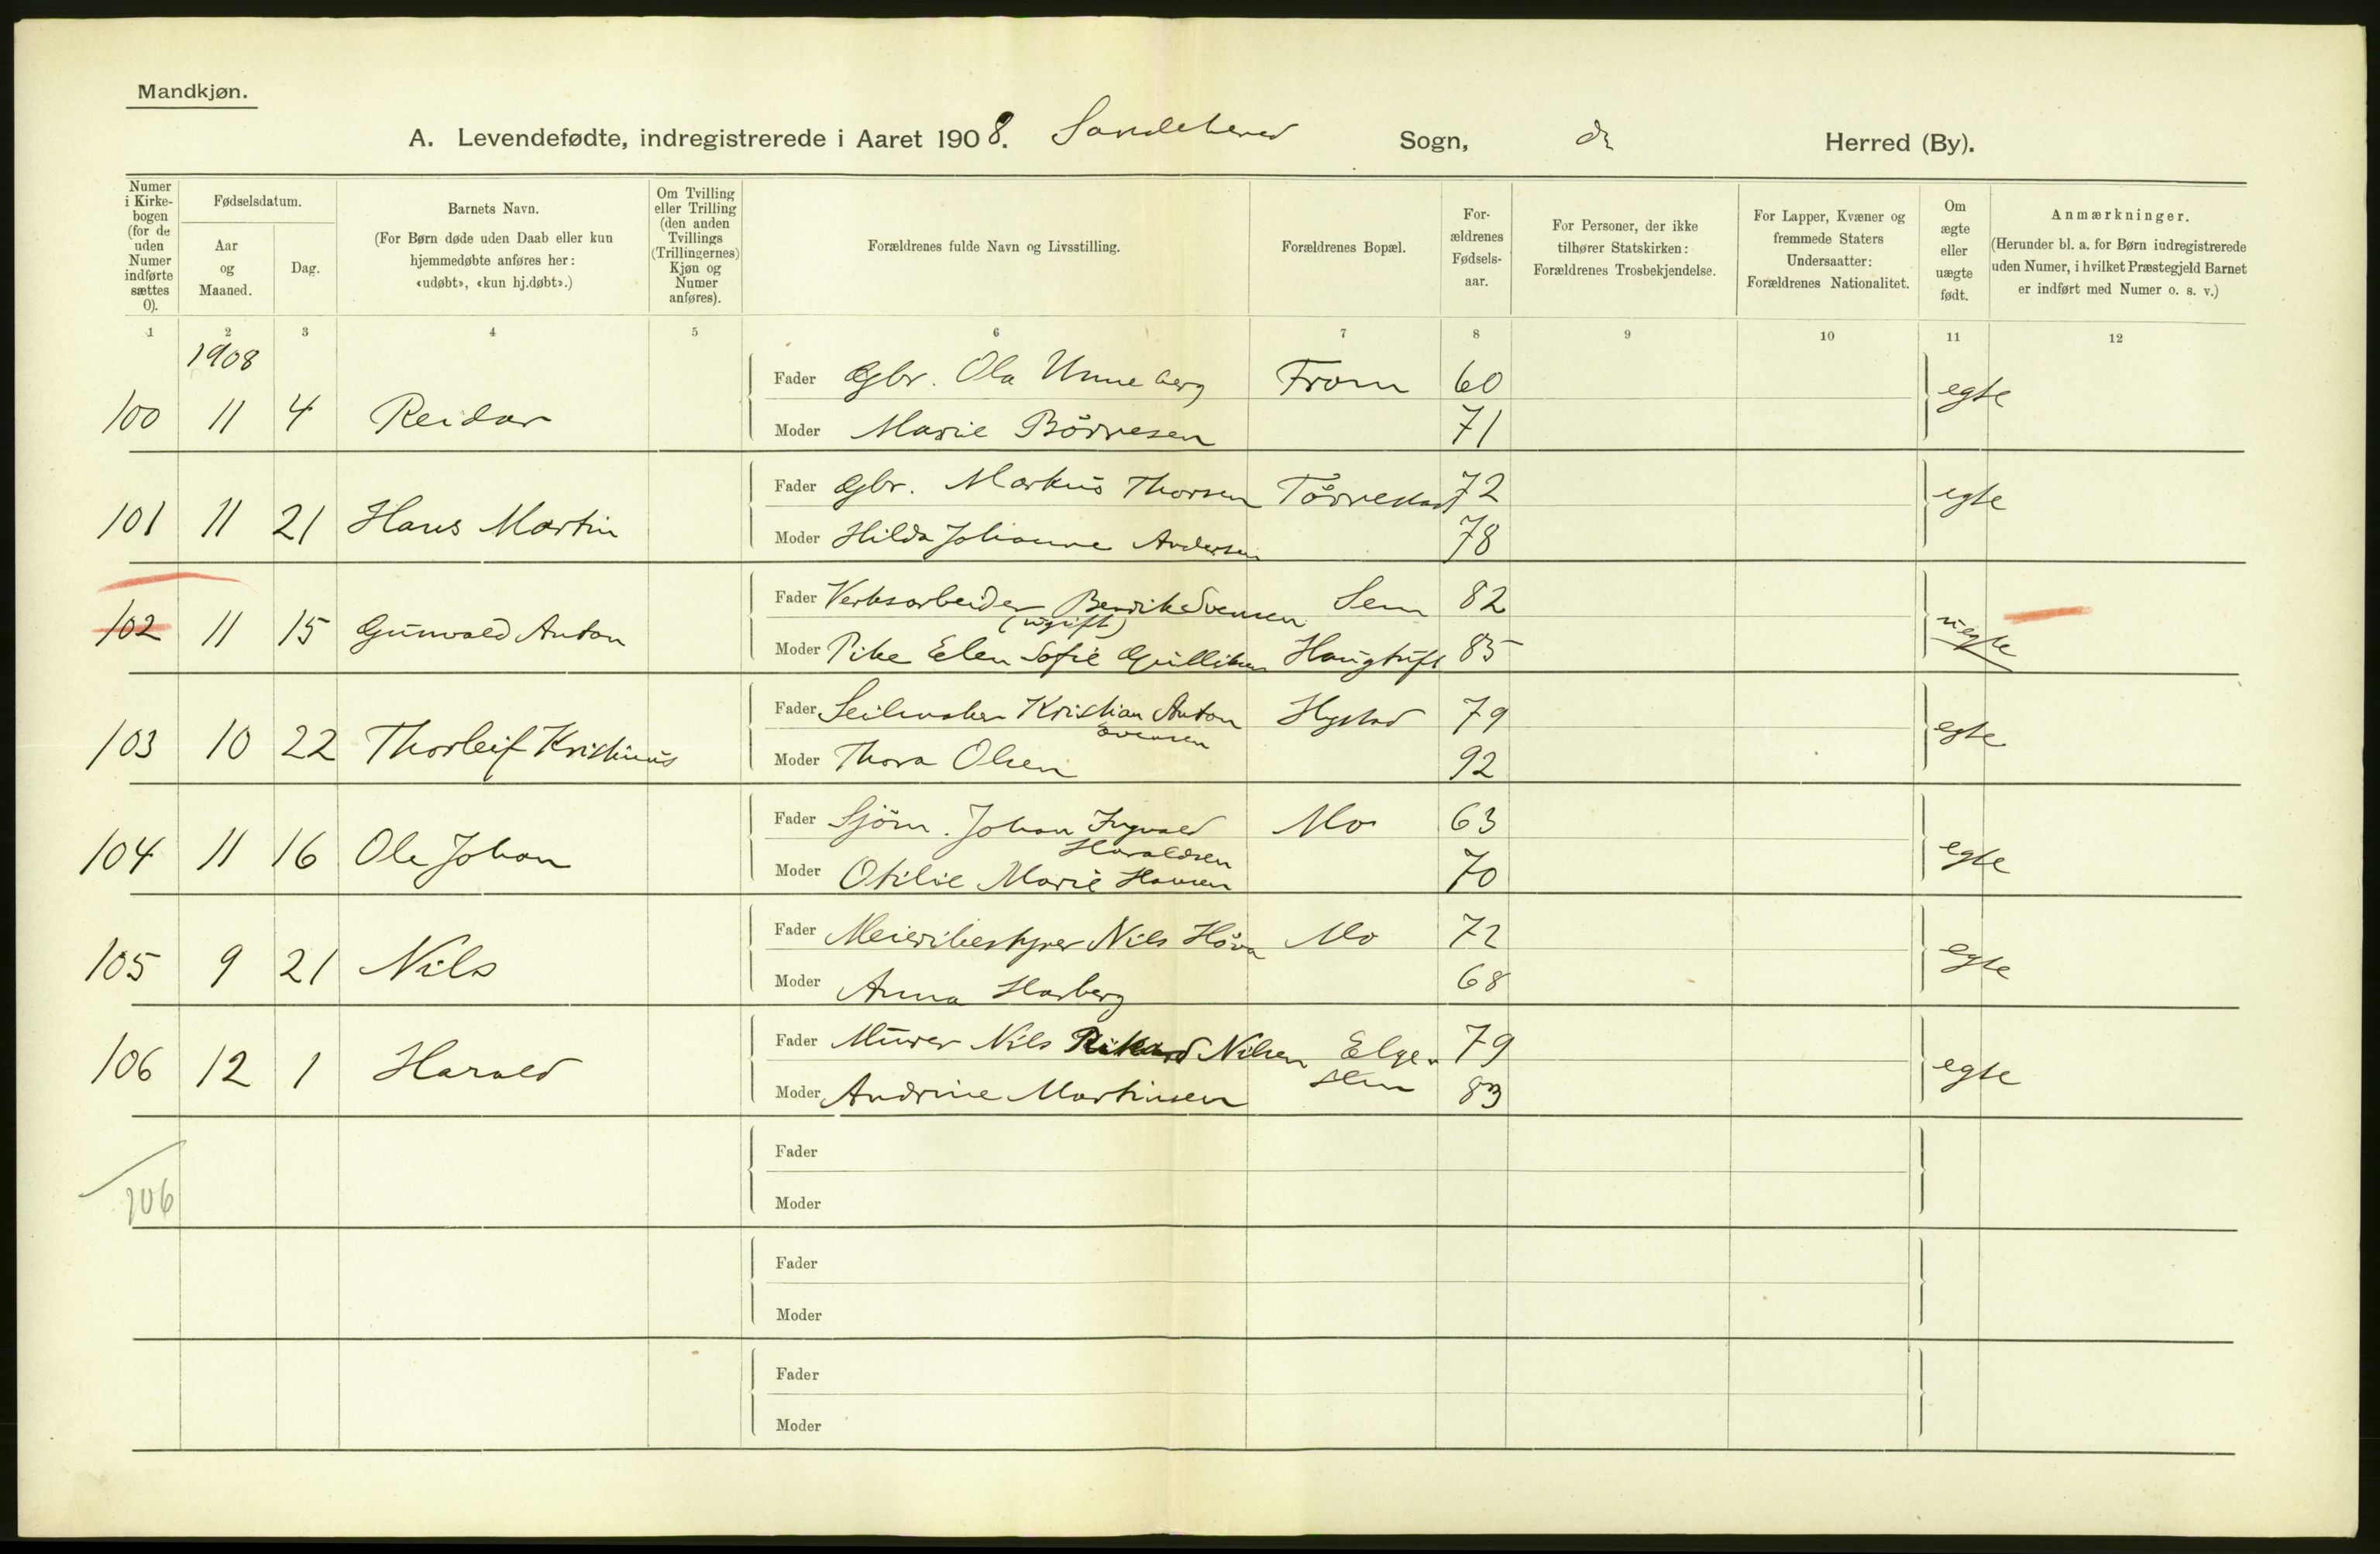 Mandkjøn.
A. Levendefødte, indregistrerede i Aaret 1908. Sandeherred Sogn, do Herred (By).
Numer i Kirkebogen (for de uden Numer indførte sættes 0).
Fødselsdatum.
Aar og Maaned.
Dag.
Barnets Navn.
(For Børn døde uden Daab eller kun hjemmedøbte anføres her: «udøbt», «kun hj.døbt».)
Om Tvilling eller Trilling (den anden Tvillings (Trillingernes) Kjøn og Numer anføres).
Forældrenes fulde Navn og Livsstilling.
Forældrenes Bopæl.
Forældrenes Fødselsaar.
For Personer, der ikke tilhører Statskirken: Forældrenes Trosbekjendelse.
For Lapper, Kvæner og fremmede Staters Undersaatter: Forældrenes Nationalitet.
Om ægte eller uægte født.
Anmærkninger.
(Herunder bl. a. for Børn indregistrerede uden Numer, i hvilket Præstegjeld Barnet er indført med Numer o. s. v.)
1 2 3 4 5 6 7 8 9 10 11 12
1908
Fader Gbr. Ola Unneberg From 60
100 11 4 Reidar egte
Moder Marie Börresen 71
Fader Gbr. Markus Thorsen Törrestad 72
101 11 21 Hans Martin egte
Moder Hilda Johanne Andersen 78
Fader Verksarbeider Bendik Svensen Sem 82
(ugift)
102 11 15 Gunvald Anton uegte
Moder Pike Elen Sofie Gulliksen Haugtuft 85
Fader Seilmaker Kristian Anton Hystad 79
Svensen
103 10 22 Thorleif Kristinus egte
Moder Thora Olsen 92
Fader Sjöm. Johan Ingvald Mo 63
Haraldsen
104 11 16 Ole Johan egte
Moder Otilie Marie Hansen 70
Fader Meieribestyrer Nils Mo 72
105 9 21 Nils egte
Moder Anna 68
Fader Murer Nils Rikard Nilsen 79
Sem
106 12 1 Harald egte
Moder Andrine Martinsen 83
Fader
106
Moder
Fader
Moder
Fader
Moder